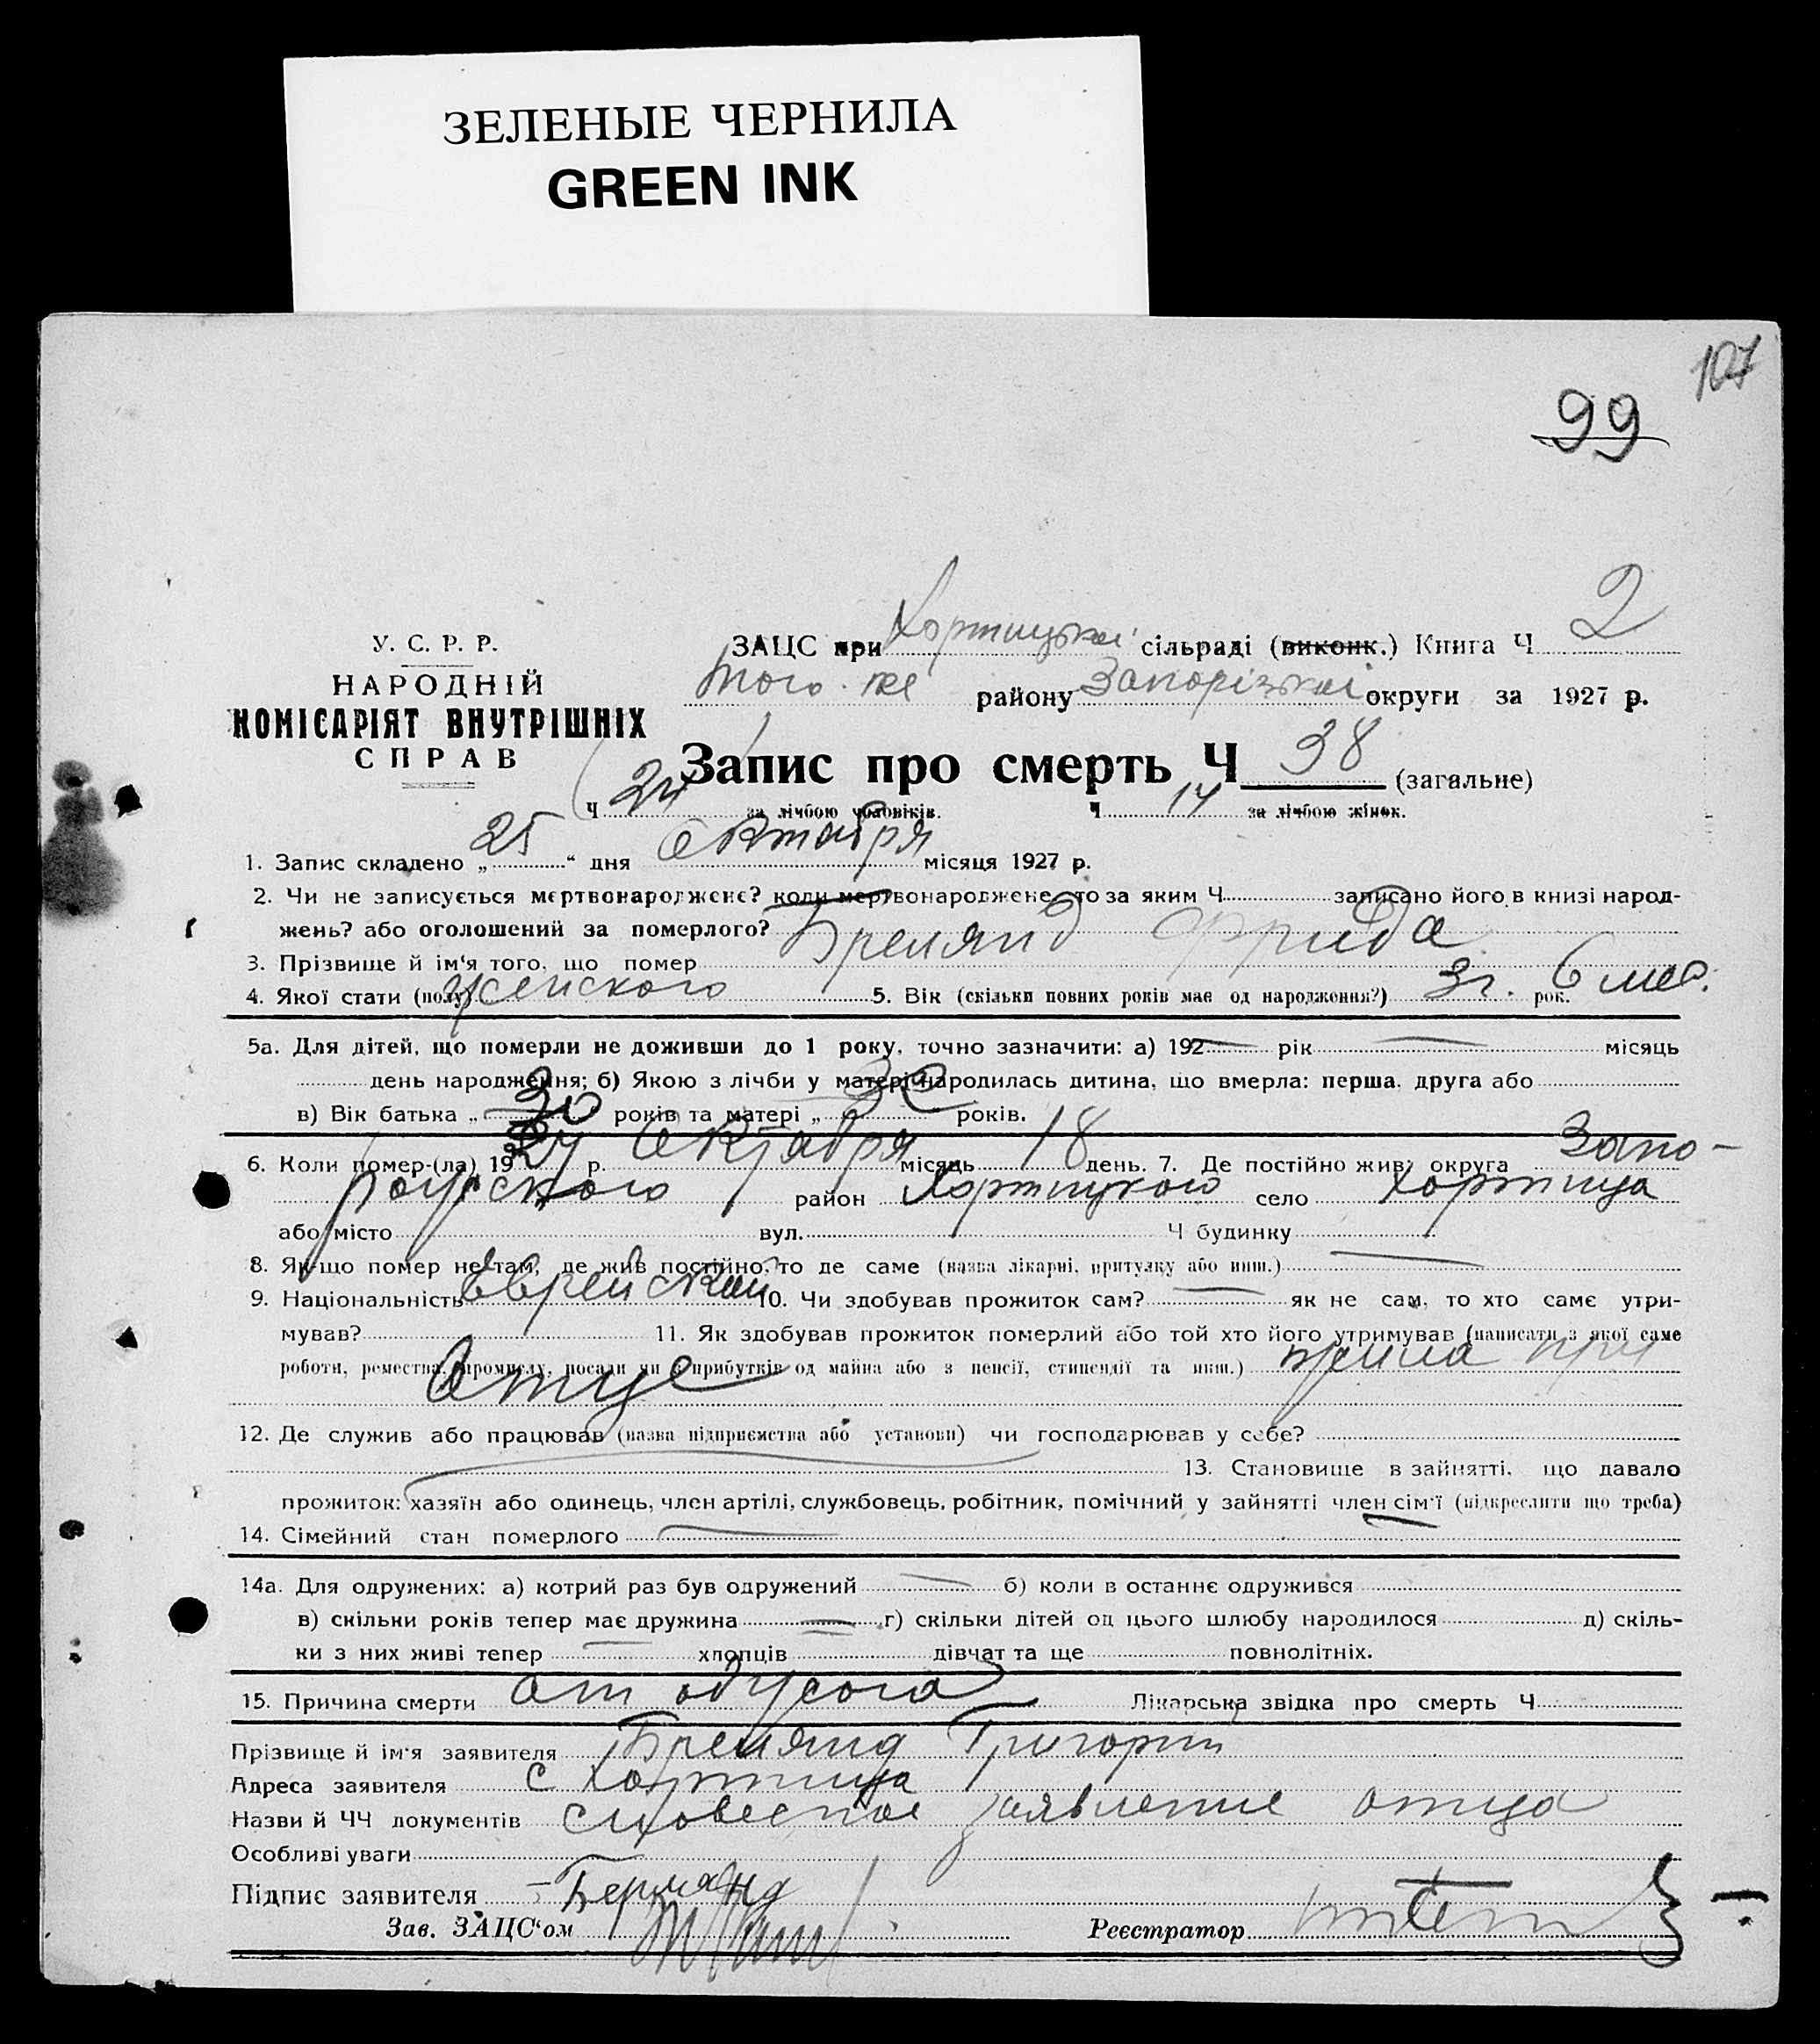 ЗЕЛЕНЫЕ ЧЕРНИЛА
GREEN INK
107
99
У. С. Р. Р.
НАРОДНІЙ
КОМІСАРІЯТ ВНУТРІШНІХ
СПРАВ
ЗАЦС при Хортицької сільраді (виконк.) Книга Ч 2
того-же району Запорізької округи за 1927 р.
Запис про смерть Ч 38 (загальне)
Ч 24 за лічбою чоловіків. Ч 14 за лічбою жінок.
1. Запис складено „ 25 “ дня Октября місяця 1927 р.
2. Чи не записується мертвонароджене? коли мертвонароджене, то за яким Ч записано його в книзі народ-
жень? або оголошений за померлого?
3. Прізвище й ім'я того, що помер Фрида
4. Якої стати (полу) женского 5. Вік (скільки повних років має од народження?) 3 г. 6 мес. рок.
5а. Для дітей, що померли не доживши до 1 року, точно зазначити: а) 192 — рік — місяць
день народження; б) Якою з лічби у матері народилась дитина, що вмерла: перша, друга або
в) Вік батька „ 30 років та матері „ 30 років.
6. Коли помер-(ла) 1927 р. Октября місяць 18 день. 7. Де постійно жив: округа Запо-
рожского район Хортицкого село Хортица
або місто вул. Ч будинку
8. Як-що помер не там, де жив постійно, то де саме (назва лікарні, притулку або инш.) —
9. Національність Еврейский 10. Чи здобував прожиток сам? — як не сам, то хто саме утри-
мував? 11. Як здобував прожиток померлий або той хто його утримував (написати з якої саме
роботи, ремества, промислу, посади чи з прибутків од майна або з пенсії, стипендії та инш.) жила при
Отце
12. Де служив або працював (назва підприємства або установи) чи господарював у себе?
13. Становище в зайнятті, що давало
прожиток: хазяїн або одинець, член артілі, службовець, робітник, помічний у зайнятті член сім'ї (підкреслити що треба)
14. Сімейний стан померлого —
14а. Для одружених: а) котрий раз був одружений — б) коли в останнє одружився
в) скільки років тепер має дружина — г) скільки дітей од цього шлюбу народилося д) скіль-
ки з них живі тепер — хлопців дівчат та ще повнолітніх.
15. Причина смерти от Лікарська звідка про смерть Ч
Прізвище й ім'я заявителя Григорий
Адреса заявителя с Хортица
Назви й ЧЧ документів словесное заявление отца
Особливі уваги
Підпис заявителя
Зав. ЗАЦС'ом Реєстратор